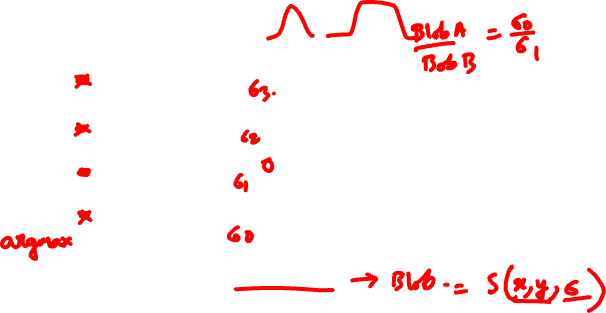 Blob A / Bob B = σ0 / σ1
σ3.
σ2
σ1 0
σ0
argmax
→ Blob = S(x,y,σ)